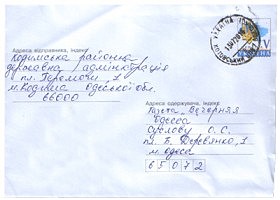 Адреса відправника, індекс
Кодимська районна
державна адміністрація
пл. Перемоги, 1
м. Кодима Одеської обл.
66000
УКРАЇНА
Адреса одержувача, індекс
Газета "Вечерняя
Одесса"
Суслову О.С.
пл. Б. Деревянко, 1
м. Одеса
65072